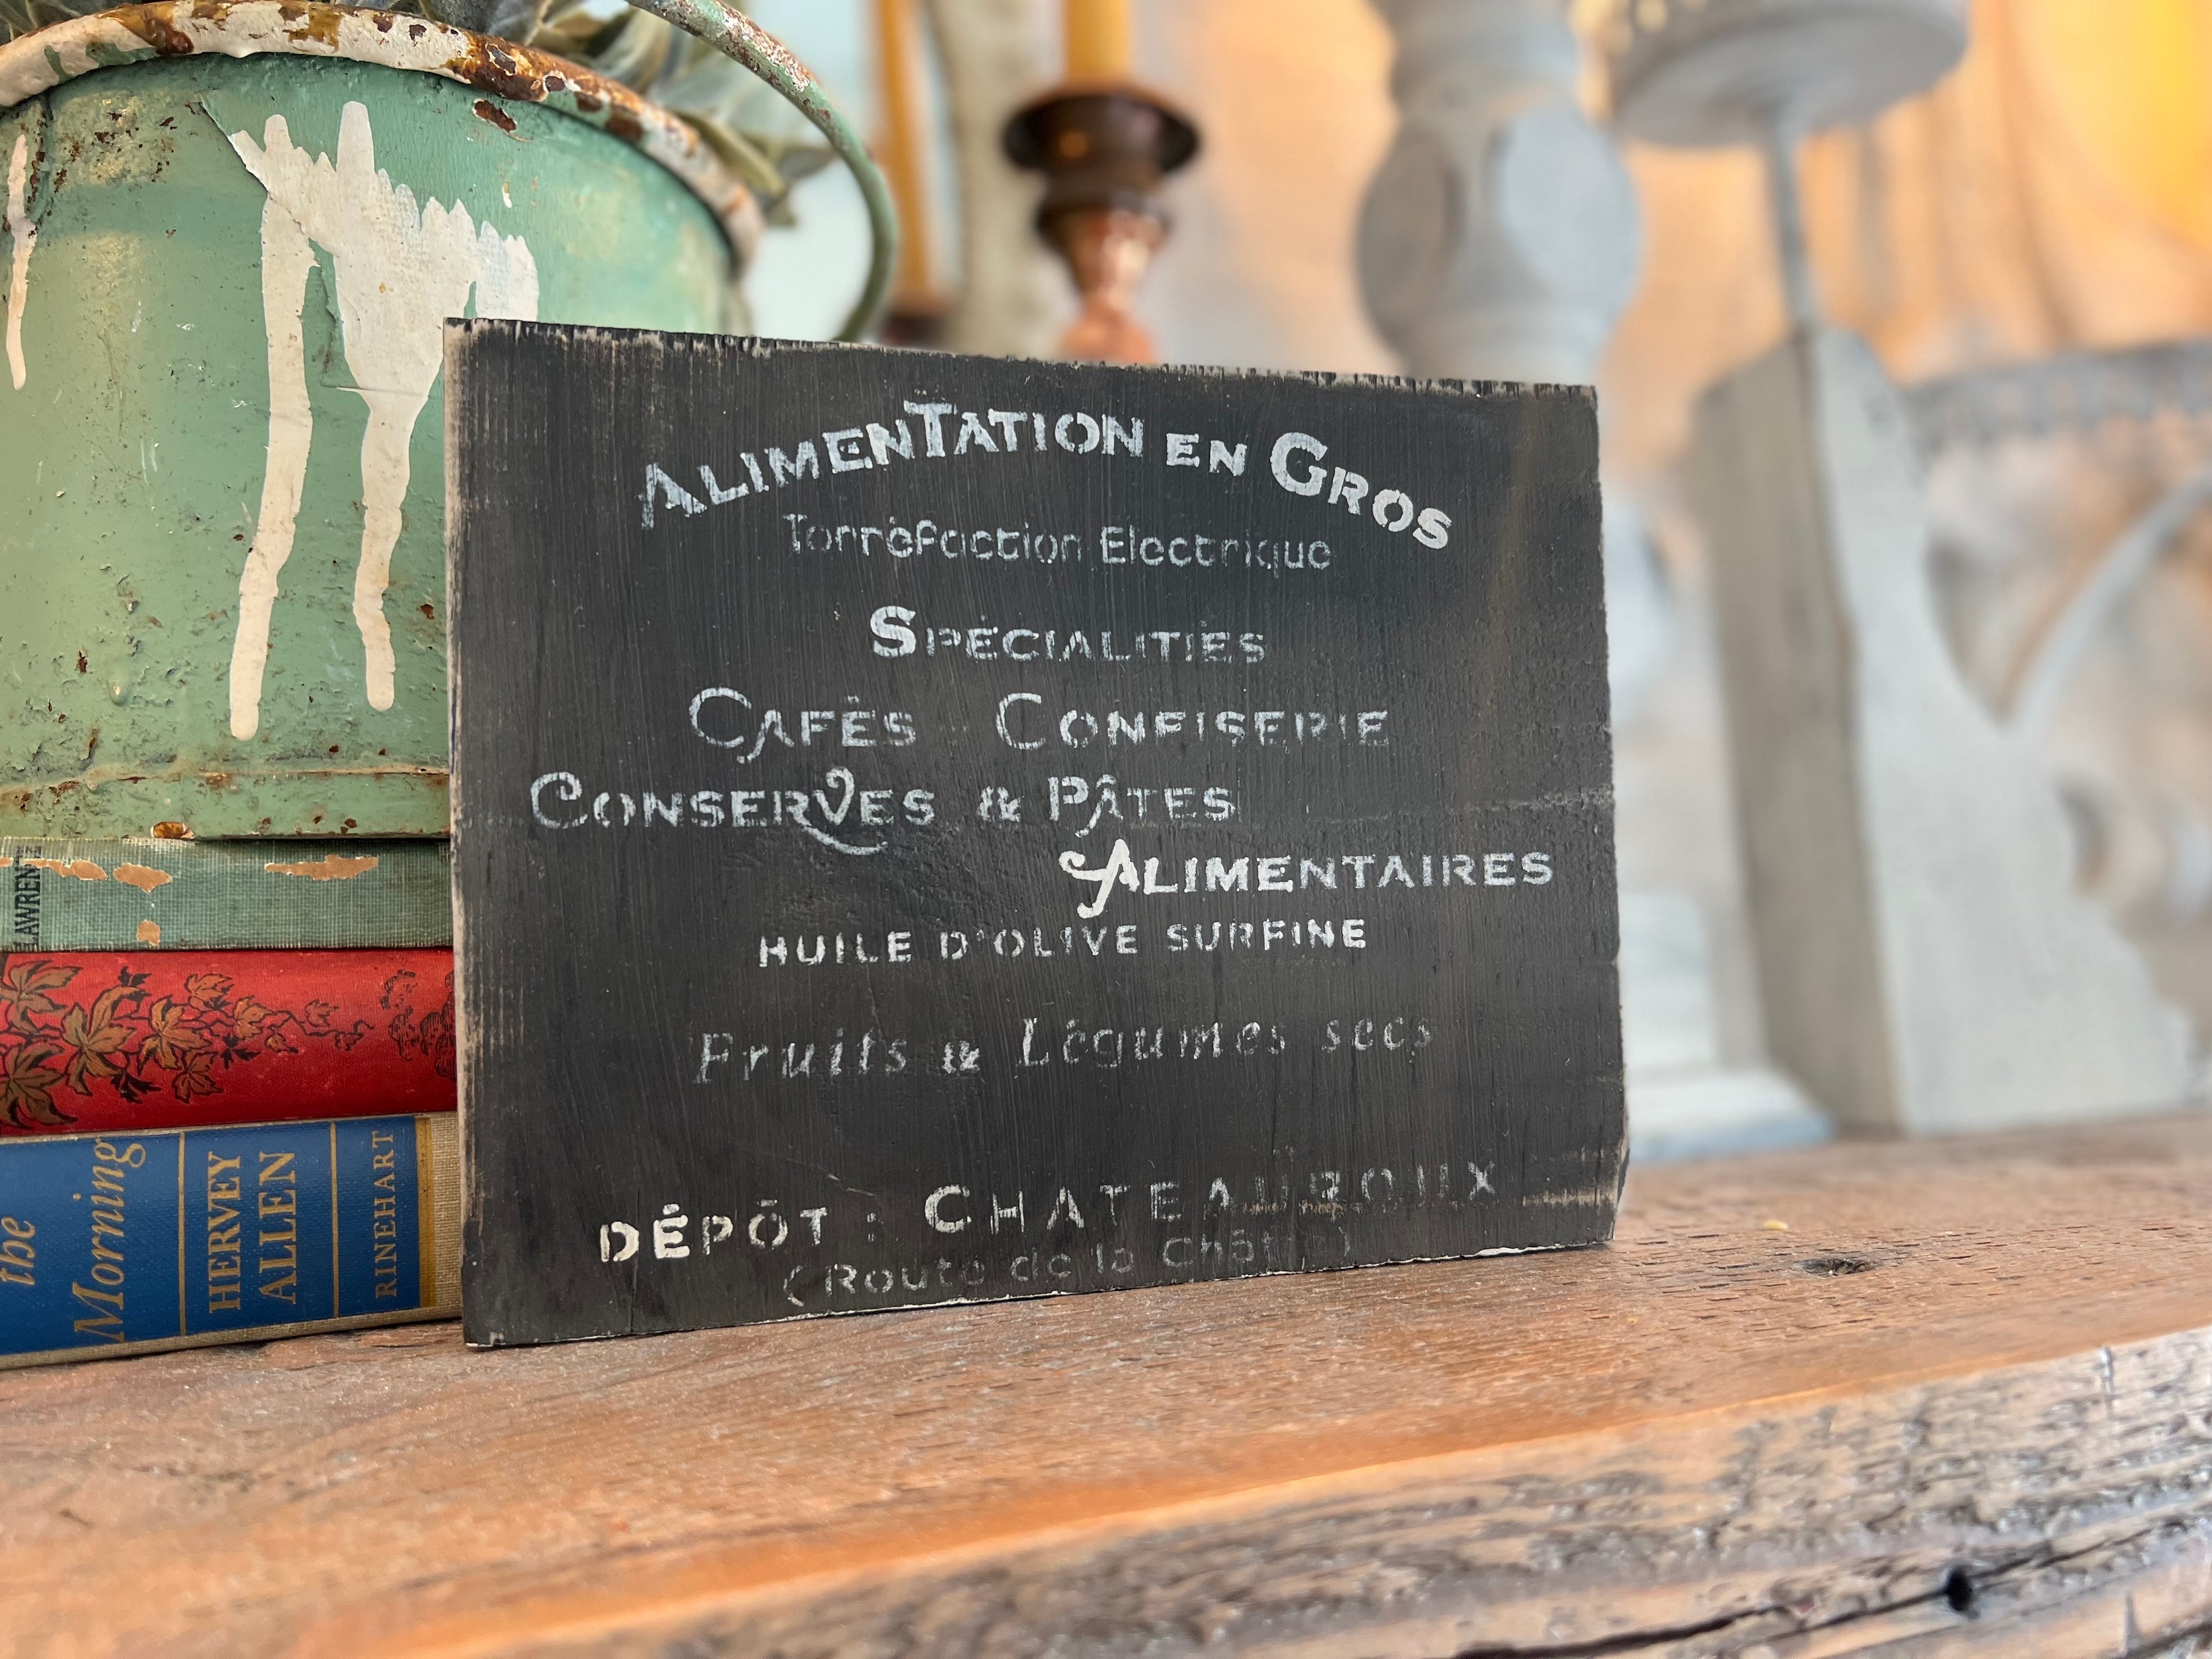 ALIMENTATION EN GROS
Torréfaction Electrique
SPÉCIALITIÉS
CAFÉS CONFISERIE
CONSERVES & PÂTES
ALIMENTAIRES
HUILE D'OLIVE SURFINE
Fruits & Légumes secs
DÉPÔT : CHATEAUROUX
(Route de la Châtre)
LAWRENCE
the
Morning
HERVEY
ALLEN
RINEHART